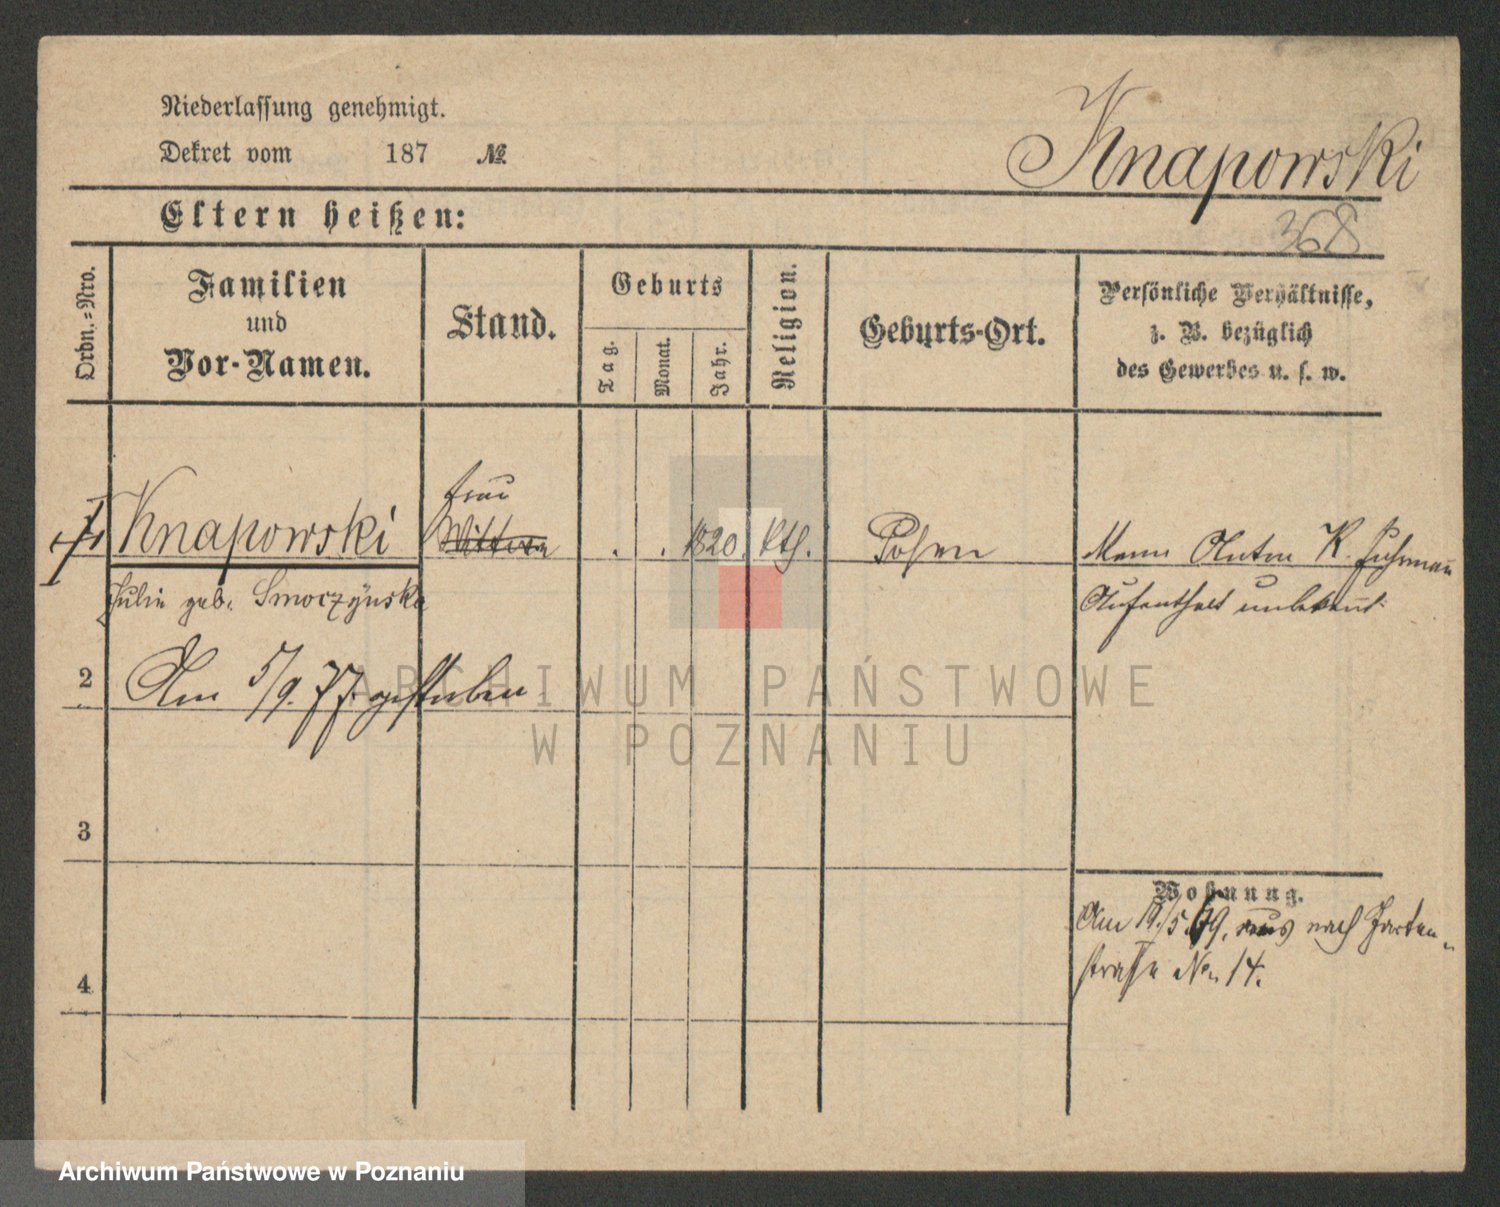 Niederlassung genehmigt.
Dekret vom 187 №
Knapowski
Eltern heißen:
368
Ordn.-Nro.
Familien
und
Vor-Namen.
Stand.
Geburts
Tag.
Monat.
Jahr.
Religion.
Geburts-Ort.
Persönliche Verhältnisse,
z. B. bezüglich
des Gewerbes u. s. w.
Frau
Knapowski Wittwe 1820. kth. Posen Mann Anton K. Fuhrmann
Julie geb. Smoczyńska Aufenthalt unbekannt.
2 Am 5/9. 77. gestorben
3
Wohnung.
Am 19/5 79. aus nach Garten-
4 straße No 14.
ARCHIWUM PAŃSTWOWE
W POZNANIU
Archiwum Państwowe w Poznaniu